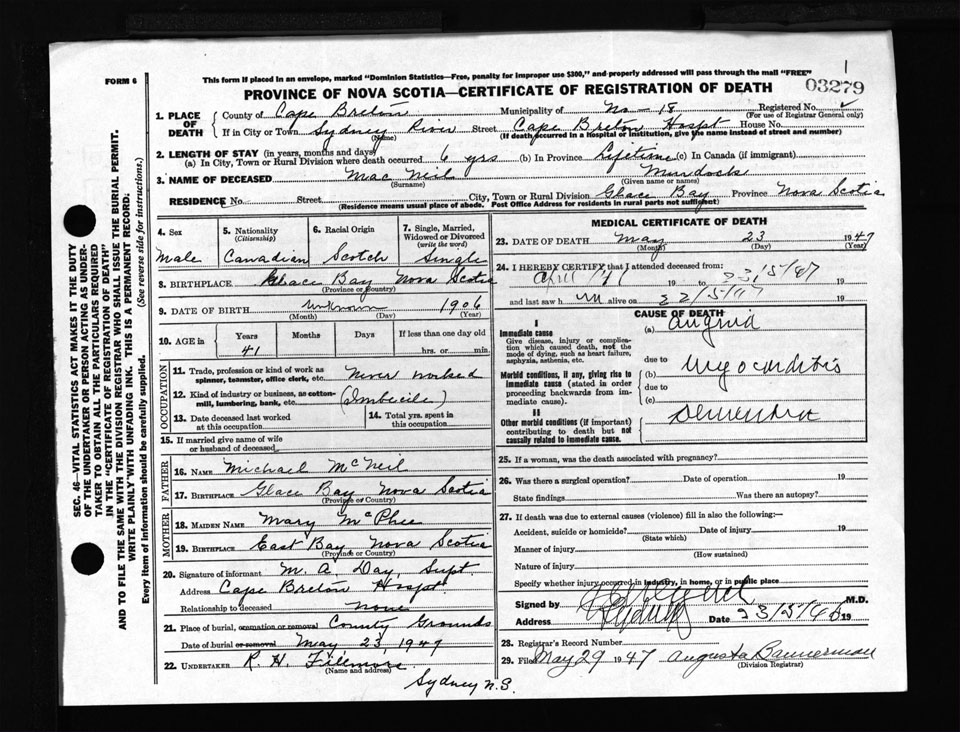 1
03279
FORM 6
This form if placed in an envelope, marked "Dominion Statistics—Free, penalty for improper use $300," and properly addressed will pass through the mail "FREE"
PROVINCE OF NOVA SCOTIA—CERTIFICATE OF REGISTRATION OF DEATH
SEC. 46—VITAL STATISTICS ACT MAKES IT THE DUTY
OF THE UNDERTAKER OR PERSON ACTING AS UNDER-
TAKER TO OBTAIN ALL THE PARTICULARS REQUIRED
IN THE "CERTIFICATE OF REGISTRATION OF DEATH"
AND TO FILE THE SAME WITH THE DIVISION REGISTRAR WHO SHALL ISSUE THE BURIAL PERMIT.
WRITE PLAINLY WITH UNFADING INK. THIS IS A PERMANENT RECORD.
Every item of information should be carefully supplied. (See reverse side for instructions.)
1. PLACE OF DEATH County of Cape Breton Municipality of No - 18 Registered No.
(For use of Registrar General only)
If in City or Town Sydney River Street Cape Breton Hospt House No.
(Name) (If death occurred in a hospital or institution, give the name instead of street and number)
2. LENGTH OF STAY (in years, months and days)
(a) In City, Town or Rural Division where death occurred 6 yrs (b) In Province Lifetime (c) In Canada (if immigrant)
3. NAME OF DECEASED Mac Neil Murdock
(Surname) (Given name or names)
RESIDENCE No. Street City, Town or Rural Division Glace Bay Province Nova Scotia
(Residence means usual place of abode. Post Office Address for residents in rural parts not sufficient)
4. Sex Male
5. Nationality (Citizenship) Canadian
6. Racial Origin Scotch
7. Single, Married, Widowed or Divorced (write the word) Single
8. BIRTHPLACE Glace Bay Nova Scotia
(Province or Country)
9. DATE OF BIRTH unknown 1906
(Month) (Day) (Year)
10. AGE in Years Months Days If less than one day old
41 hrs. or min.
OCCUPATION
11. Trade, profession or kind of work as spinner, teamster, office clerk, etc. Never worked
12. Kind of industry or business, as cotton-mill, lumbering, bank, etc. (Imbecile)
13. Date deceased last worked at this occupation
14. Total yrs. spent in this occupation
15. If married give name of wife or husband of deceased
FATHER
16. NAME Michael McNeil
17. BIRTHPLACE Glace Bay Nova Scotia
(Province or Country)
MOTHER
18. MAIDEN NAME Mary McPhee
19. BIRTHPLACE East Bay Nova Scotia
(Province or Country)
20. Signature of informant M. A. Day, Supt.
Address Cape Breton Hospt.
Relationship to deceased none
21. Place of burial, cremation or removal County Grounds
Date of burial or removal May 23, 1947
22. UNDERTAKER R. H. Fillmore
(Name and address)
Sydney N.S.
MEDICAL CERTIFICATE OF DEATH
23. DATE OF DEATH May 23 1947
(Month) (Day) (Year)
24. I HEREBY CERTIFY that I attended deceased from:
April 19 to 23/5/47 19
and last saw h im alive on 22/5/47 19
CAUSE OF DEATH
I
Immediate cause
Give disease, injury or complication which caused death, not the mode of dying, such as heart failure, asphyxia, asthenia, etc.
(a) Angina
due to
Morbid conditions, if any, giving rise to immediate cause (stated in order proceeding backwards from immediate cause).
(b) Myocarditis
due to
(c)
II
Other morbid conditions (if important) contributing to death but not causally related to immediate cause.
Dementia
25. If a woman, was the death associated with pregnancy?
26. Was there a surgical operation? Date of operation 19
State findings Was there an autopsy?
27. If death was due to external causes (violence) fill in also the following:—
Accident, suicide or homicide? Date of injury 19
(State which)
Manner of injury
(How sustained)
Nature of injury
Specify whether injury occurred in industry, in home, or in public place
Signed by M.D.
Address Sydney Date 23/5/4 19
28. Registrar's Record Number
29. Filed May 29 1947 Augusta Bannerman
(Division Registrar)